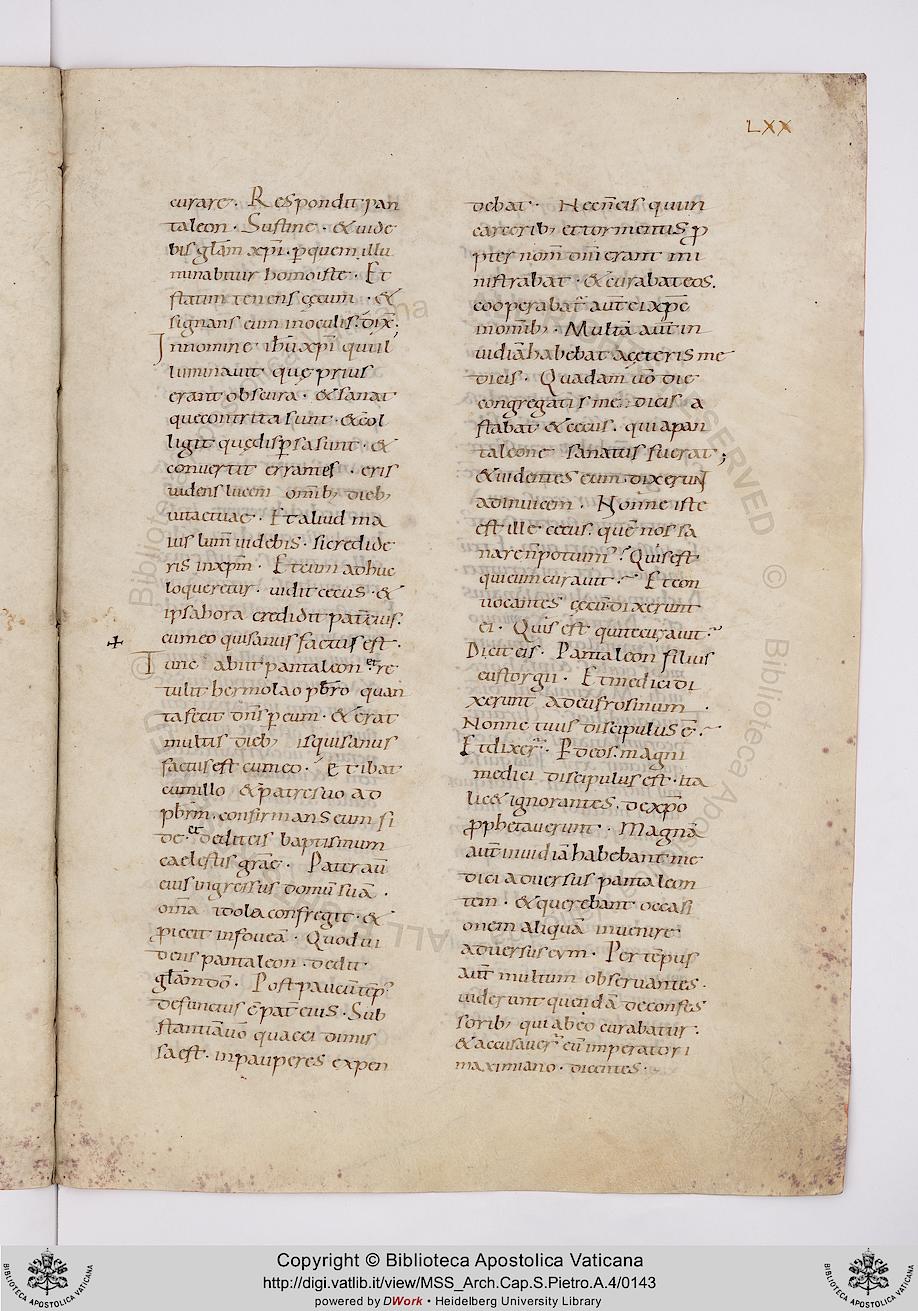 LXX
curare· Respondit pan
taleon· Sustine· & uide
bis głam xp̄i· p̱ quem illu
minabitur homo iste· Et
statim tenens cęcum· &
signans eum in oculis· dix̄·
In nomine ih̄u xp̄i qui il
luminauit quę prius
erant obscura· & sanat
que contrita sunt· & col
ligit quę disp̱sa sunt· &
conuertit errantes· eris
uidens lucem omīb; dieb;
uitae tuae· Et aliud ma
ius lum̄ uidebis· si credide
ris in xp̄m· Et cum adhuc
loqueretur· uidit cecus· &
ipsa hora credidit pat̄ eius·
cum eo qui sanus factus est·
Tunc abiit pantaleon et re
tulit hermolao pb̄ro quan
ta fecit dn̄s p̱ eum· & erat
multis dieb; is qui sanus
factus est cum eo· Et ibat
cum illo & patre suo ad
pbr̄m· confirmans eum fi
de· et dedit eis baptismum
caelestis grāe· Pater aū
eius ingressus domū suā·
om̄a idola confregit· &
p̱iecit in foueā· Quod ui
dens pantaleon· dedit
głam dō· Post paucū temp̄
defunctus ē pat̄ eius· Sub
stantiā uō quae ei dimis
sa est· in pauperes expen
debat· Necn̄ eis qui in
carcerib; et tormentis p̱
pter nom̄ dn̄i erant mi
nistrabat· & curabat eos·
cooperabat̄ aut̄ ei xp̄c
in omīb;· Multā aut̄ in
uidiā habebat a cęteris me
dicis· Quadam uō die
congregatis medicis a
stabat & cecus· qui a pan
taleone sanatus fuerat;
& uidentes eum· dixerunt
ad inuicem· Nonne iste
est ille cecus· quē nos sa
nare n̄ potuim̄? Quis est
qui eum curauit? Et con
uocantes cęcū dixerunt
ei· Quis est qui te curauit?
Dicit eis· Pantaleon filius
eustorgii· Et medici di
xerunt ad eufrosinum·
Nonne tuus discipulus ē?
Et dixer̄· P̱ deos· magni
medici discipulus est· ita
lic& ignorantes· de xp̄o
p̱phetauerunt· Magnā
aut̄ inuidiā habebant me
dici aduersus pantaleon
tem· & querebant occasi
onem aliquā inuenire
aduersus eum· Per tēpus
aut̄ multum obseruantes·
uiderunt quendā de confes
sorib; qui ab eo curabatur·
& accusauer̄ eū imperatori
maximiano· dicentes·
Copyright © Biblioteca Apostolica Vaticana
http://digi.vatlib.it/view/MSS_Arch.Cap.S.Pietro.A.4/0143
powered by DWork • Heidelberg University Library
BIBLIOTECA APOSTOLICA VATICANA
BIBLIOTECA APOSTOLICA VATICANA